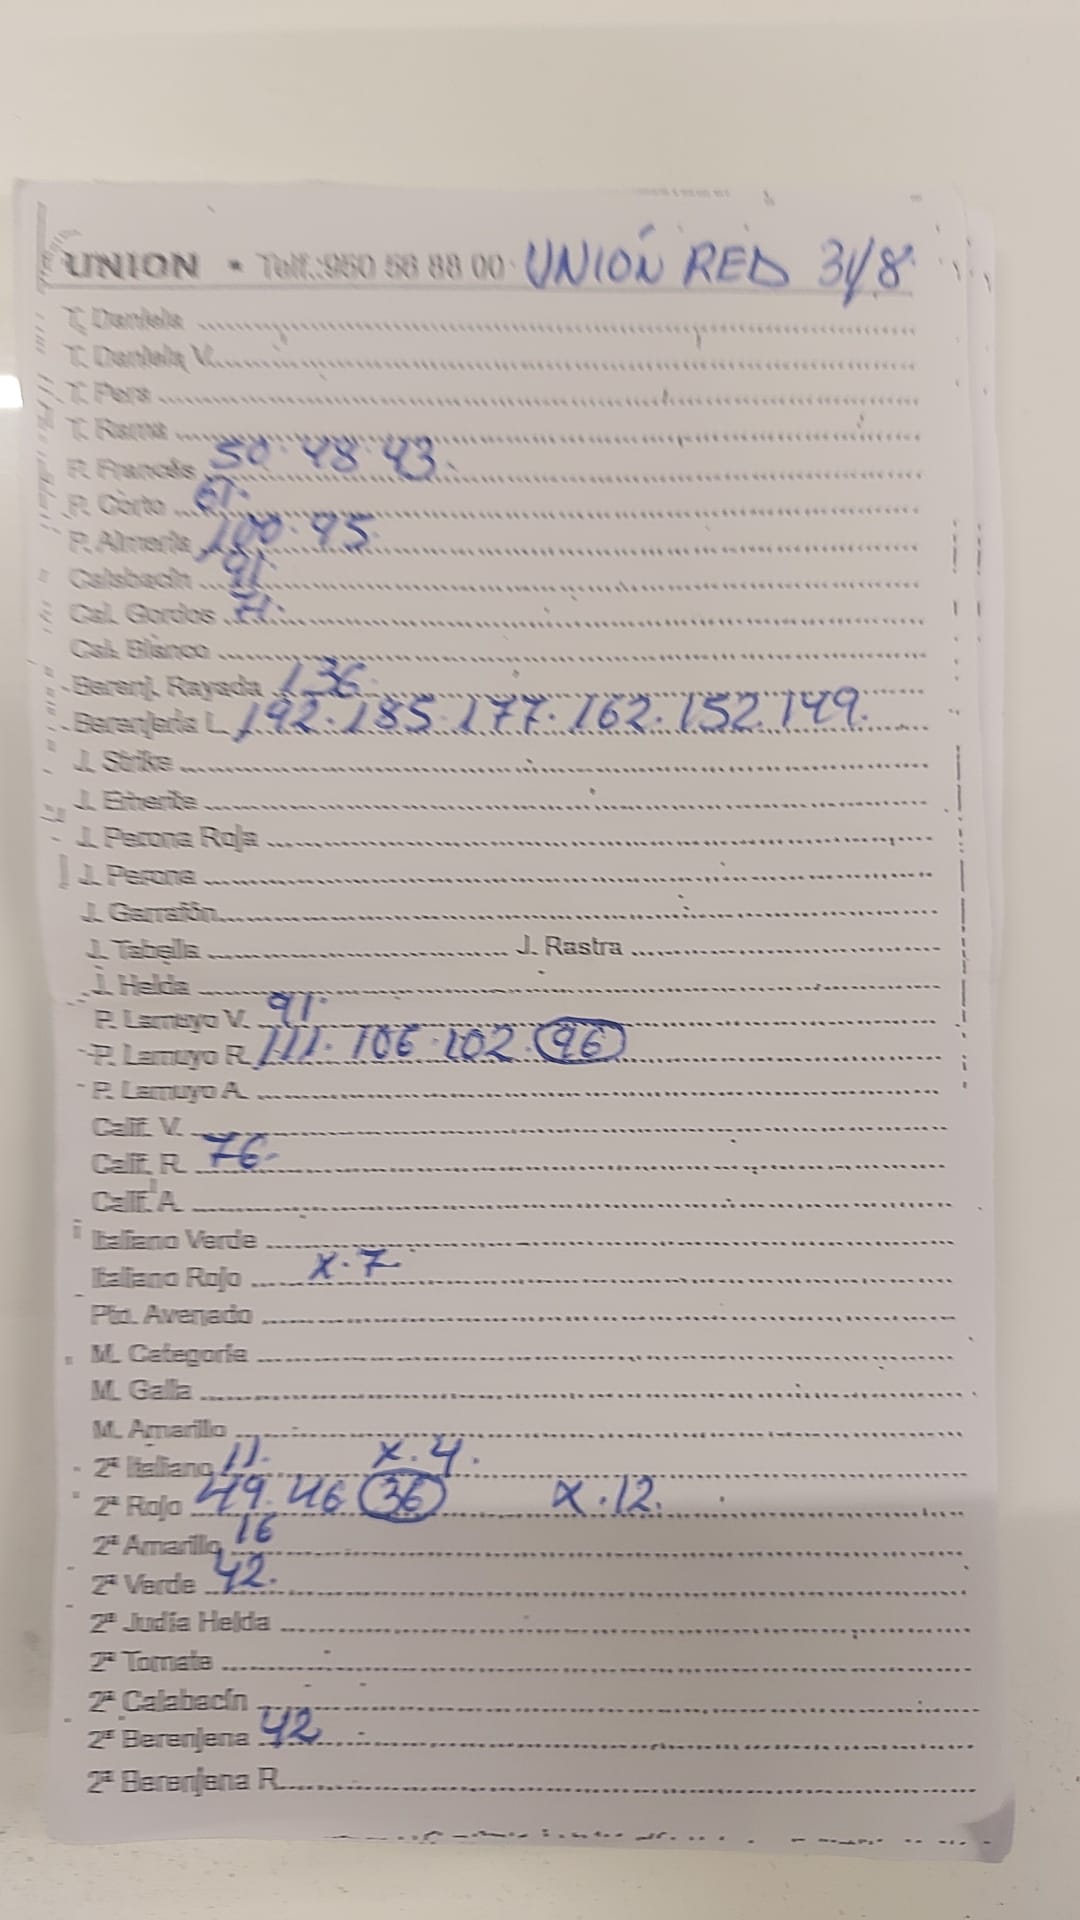 UNION • Telf.:950 58 88 00 · UNIÓN RED 31/8
T. Daniela
T. Daniela V.
T. Pera
T. Rama
P. Francés 50·48·43.
P. Corto 61.
P. Almería 100·95.
Calabacín 91.
Cal. Gordos 71.
Cal. Blanco
Berenj. Rayada 136.
Berenjena L. 192·185·177·162·152·149.
J. Strike
J. Emerite
J. Perona Roja
J. Perona
J. Garrafón
J. Tabella J. Rastra
J. Helda
P. Lamuyo V. 91.
P. Lamuyo R. 111·106·102·96
P. Lamuyo A.
Calif. V.
Calif. R. 76.
Calif. A.
Italiano Verde
Italiano Rojo x·7
Pto. Averiado
M. Categoría
M. Galia
M. Amarillo
2ª Italiano 11. x·4.
2ª Rojo 49·46 36 x·12.
2ª Amarillo 16
2ª Verde 42.
2ª Judía Helda
2ª Tomate
2ª Calabacín
2ª Berenjena 42
2ª Berenjena R.